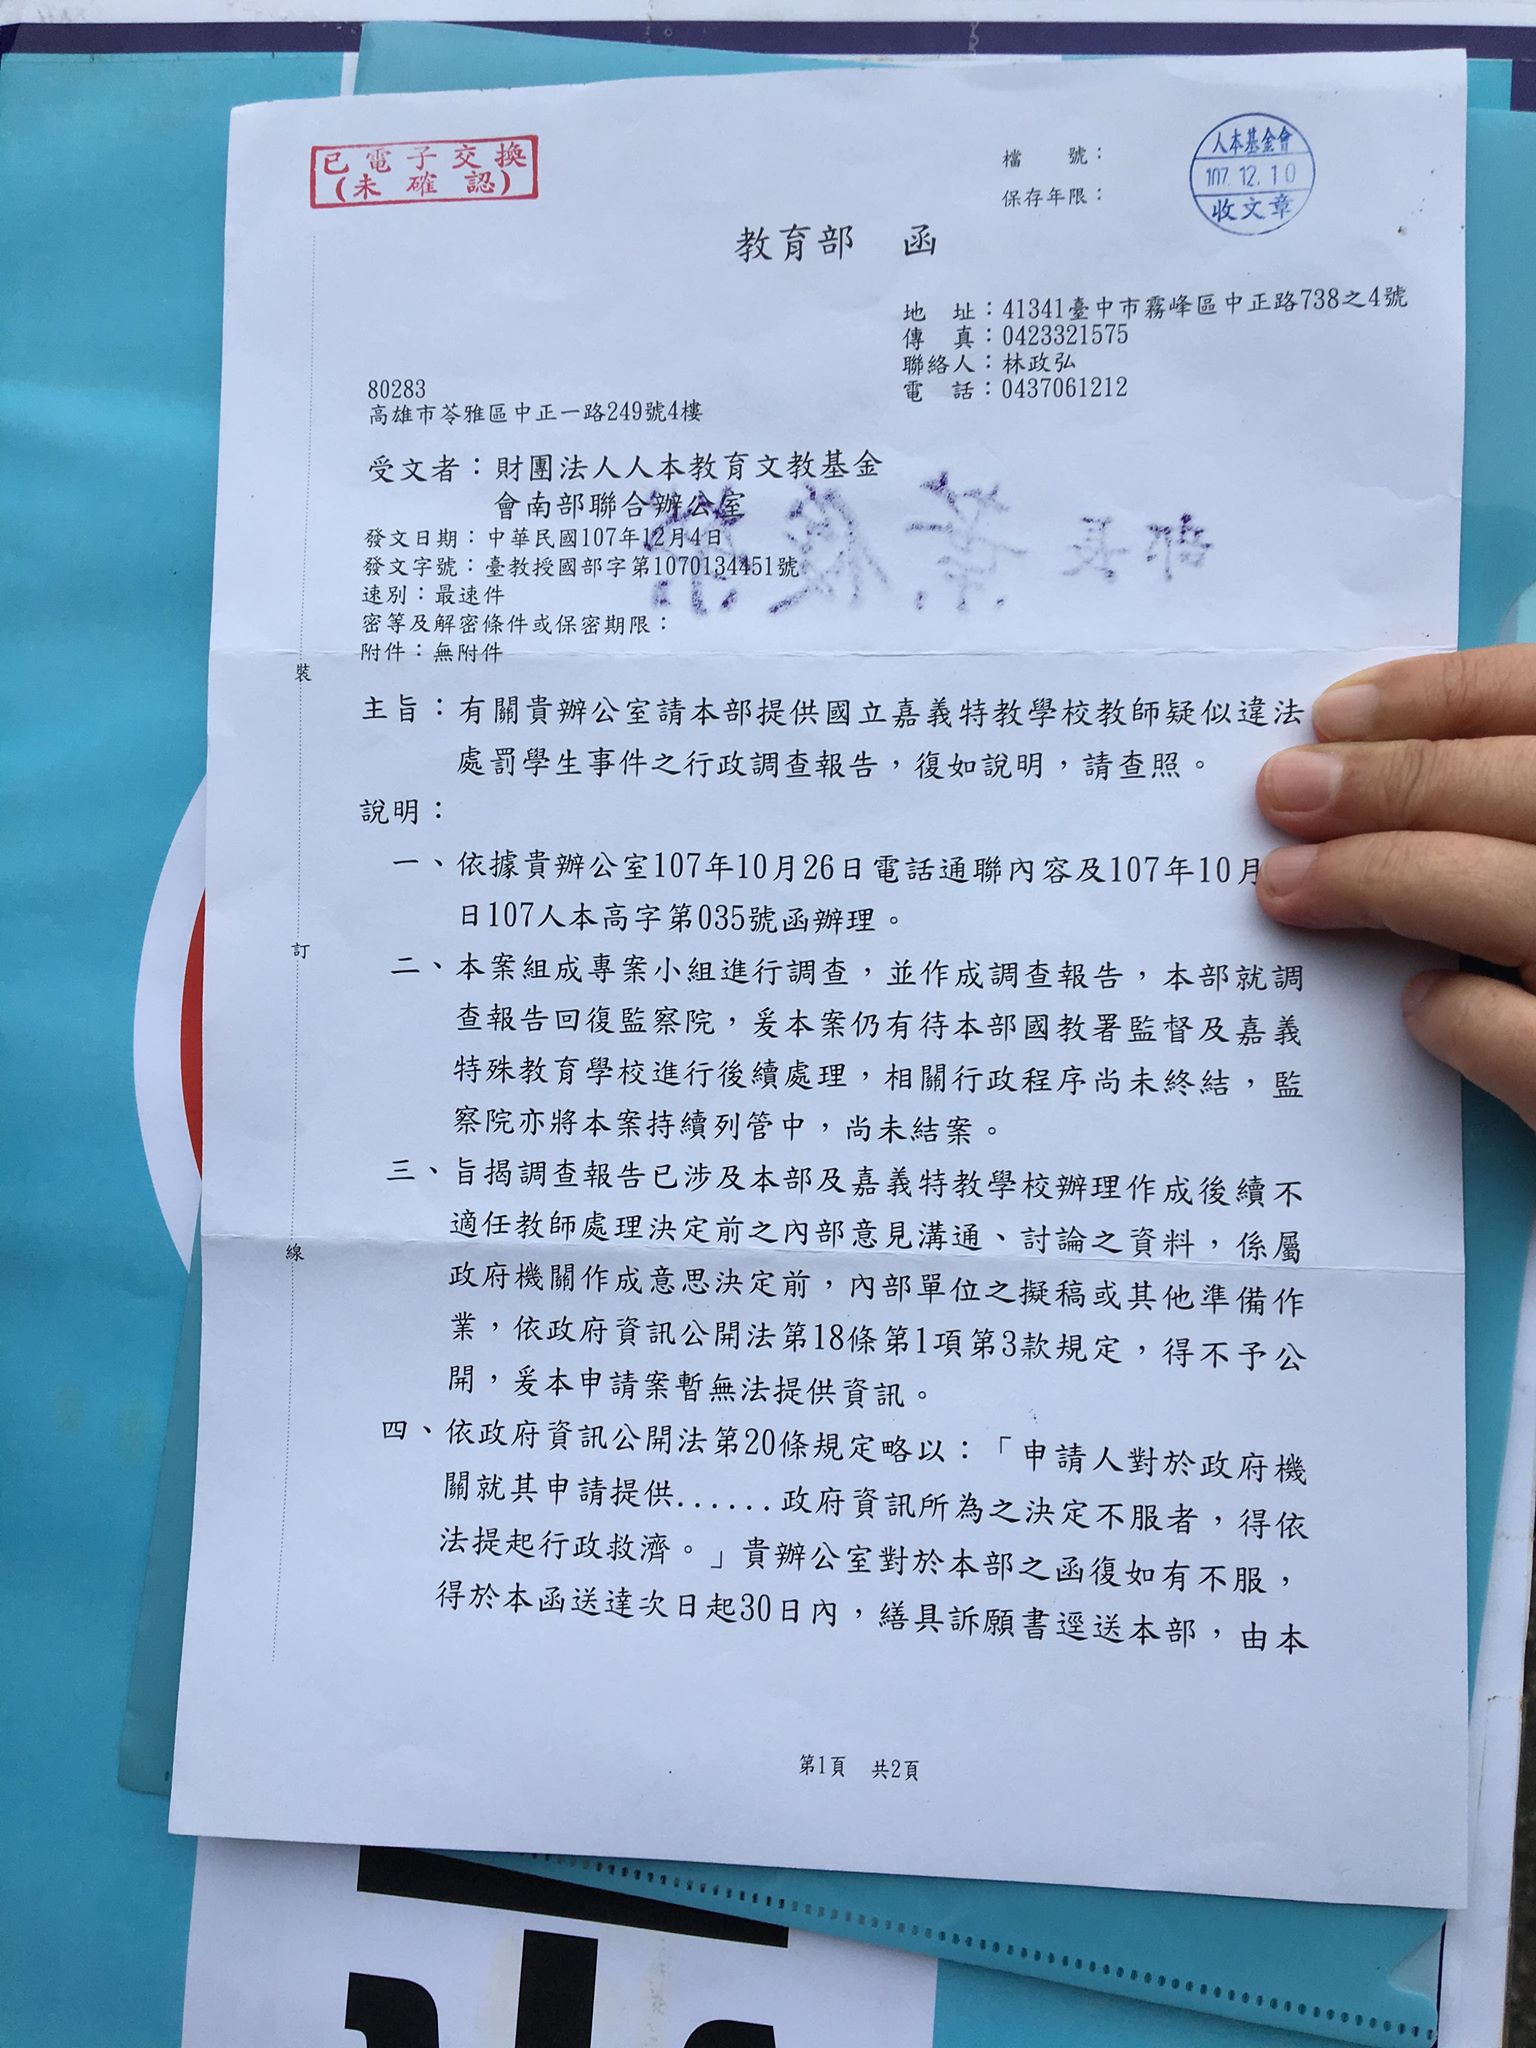 已電子交換
(未確認)
檔　　號：
保存年限：
人本基金會
107.12.10
收文章
教育部　函
地　址：41341臺中市霧峰區中正路738之4號
傳　真：0423321575
聯絡人：林政弘
電　話：0437061212
80283
高雄市苓雅區中正一路249號4樓
受文者：財團法人人本教育文教基金
會南部聯合辦公室
發文日期：中華民國107年12月4日
發文字號：臺教授國部字第1070134451號
速別：最速件
密等及解密條件或保密期限：
附件：無附件
部長葉俊榮
主旨：有關貴辦公室請本部提供國立嘉義特教學校教師疑似違法
處罰學生事件之行政調查報告，復如說明，請查照。
說明：
一、依據貴辦公室107年10月26日電話通聯內容及107年10月
日107人本高字第035號函辦理。
二、本案組成專案小組進行調查，並作成調查報告，本部就調
查報告回復監察院，爰本案仍有待本部國教署監督及嘉義
特殊教育學校進行後續處理，相關行政程序尚未終結，監
察院亦將本案持續列管中，尚未結案。
三、旨揭調查報告已涉及本部及嘉義特教學校辦理作成後續不
適任教師處理決定前之內部意見溝通、討論之資料，係屬
政府機關作成意思決定前，內部單位之擬稿或其他準備作
業，依政府資訊公開法第18條第1項第3款規定，得不予公
開，爰本申請案暫無法提供資訊。
四、依政府資訊公開法第20條規定略以：「申請人對於政府機
關就其申請提供......政府資訊所為之決定不服者，得依
法提起行政救濟。」貴辦公室對於本部之函復如有不服，
得於本函送達次日起30日內，繕具訴願書逕送本部，由本
裝
訂
線
第1頁　共2頁